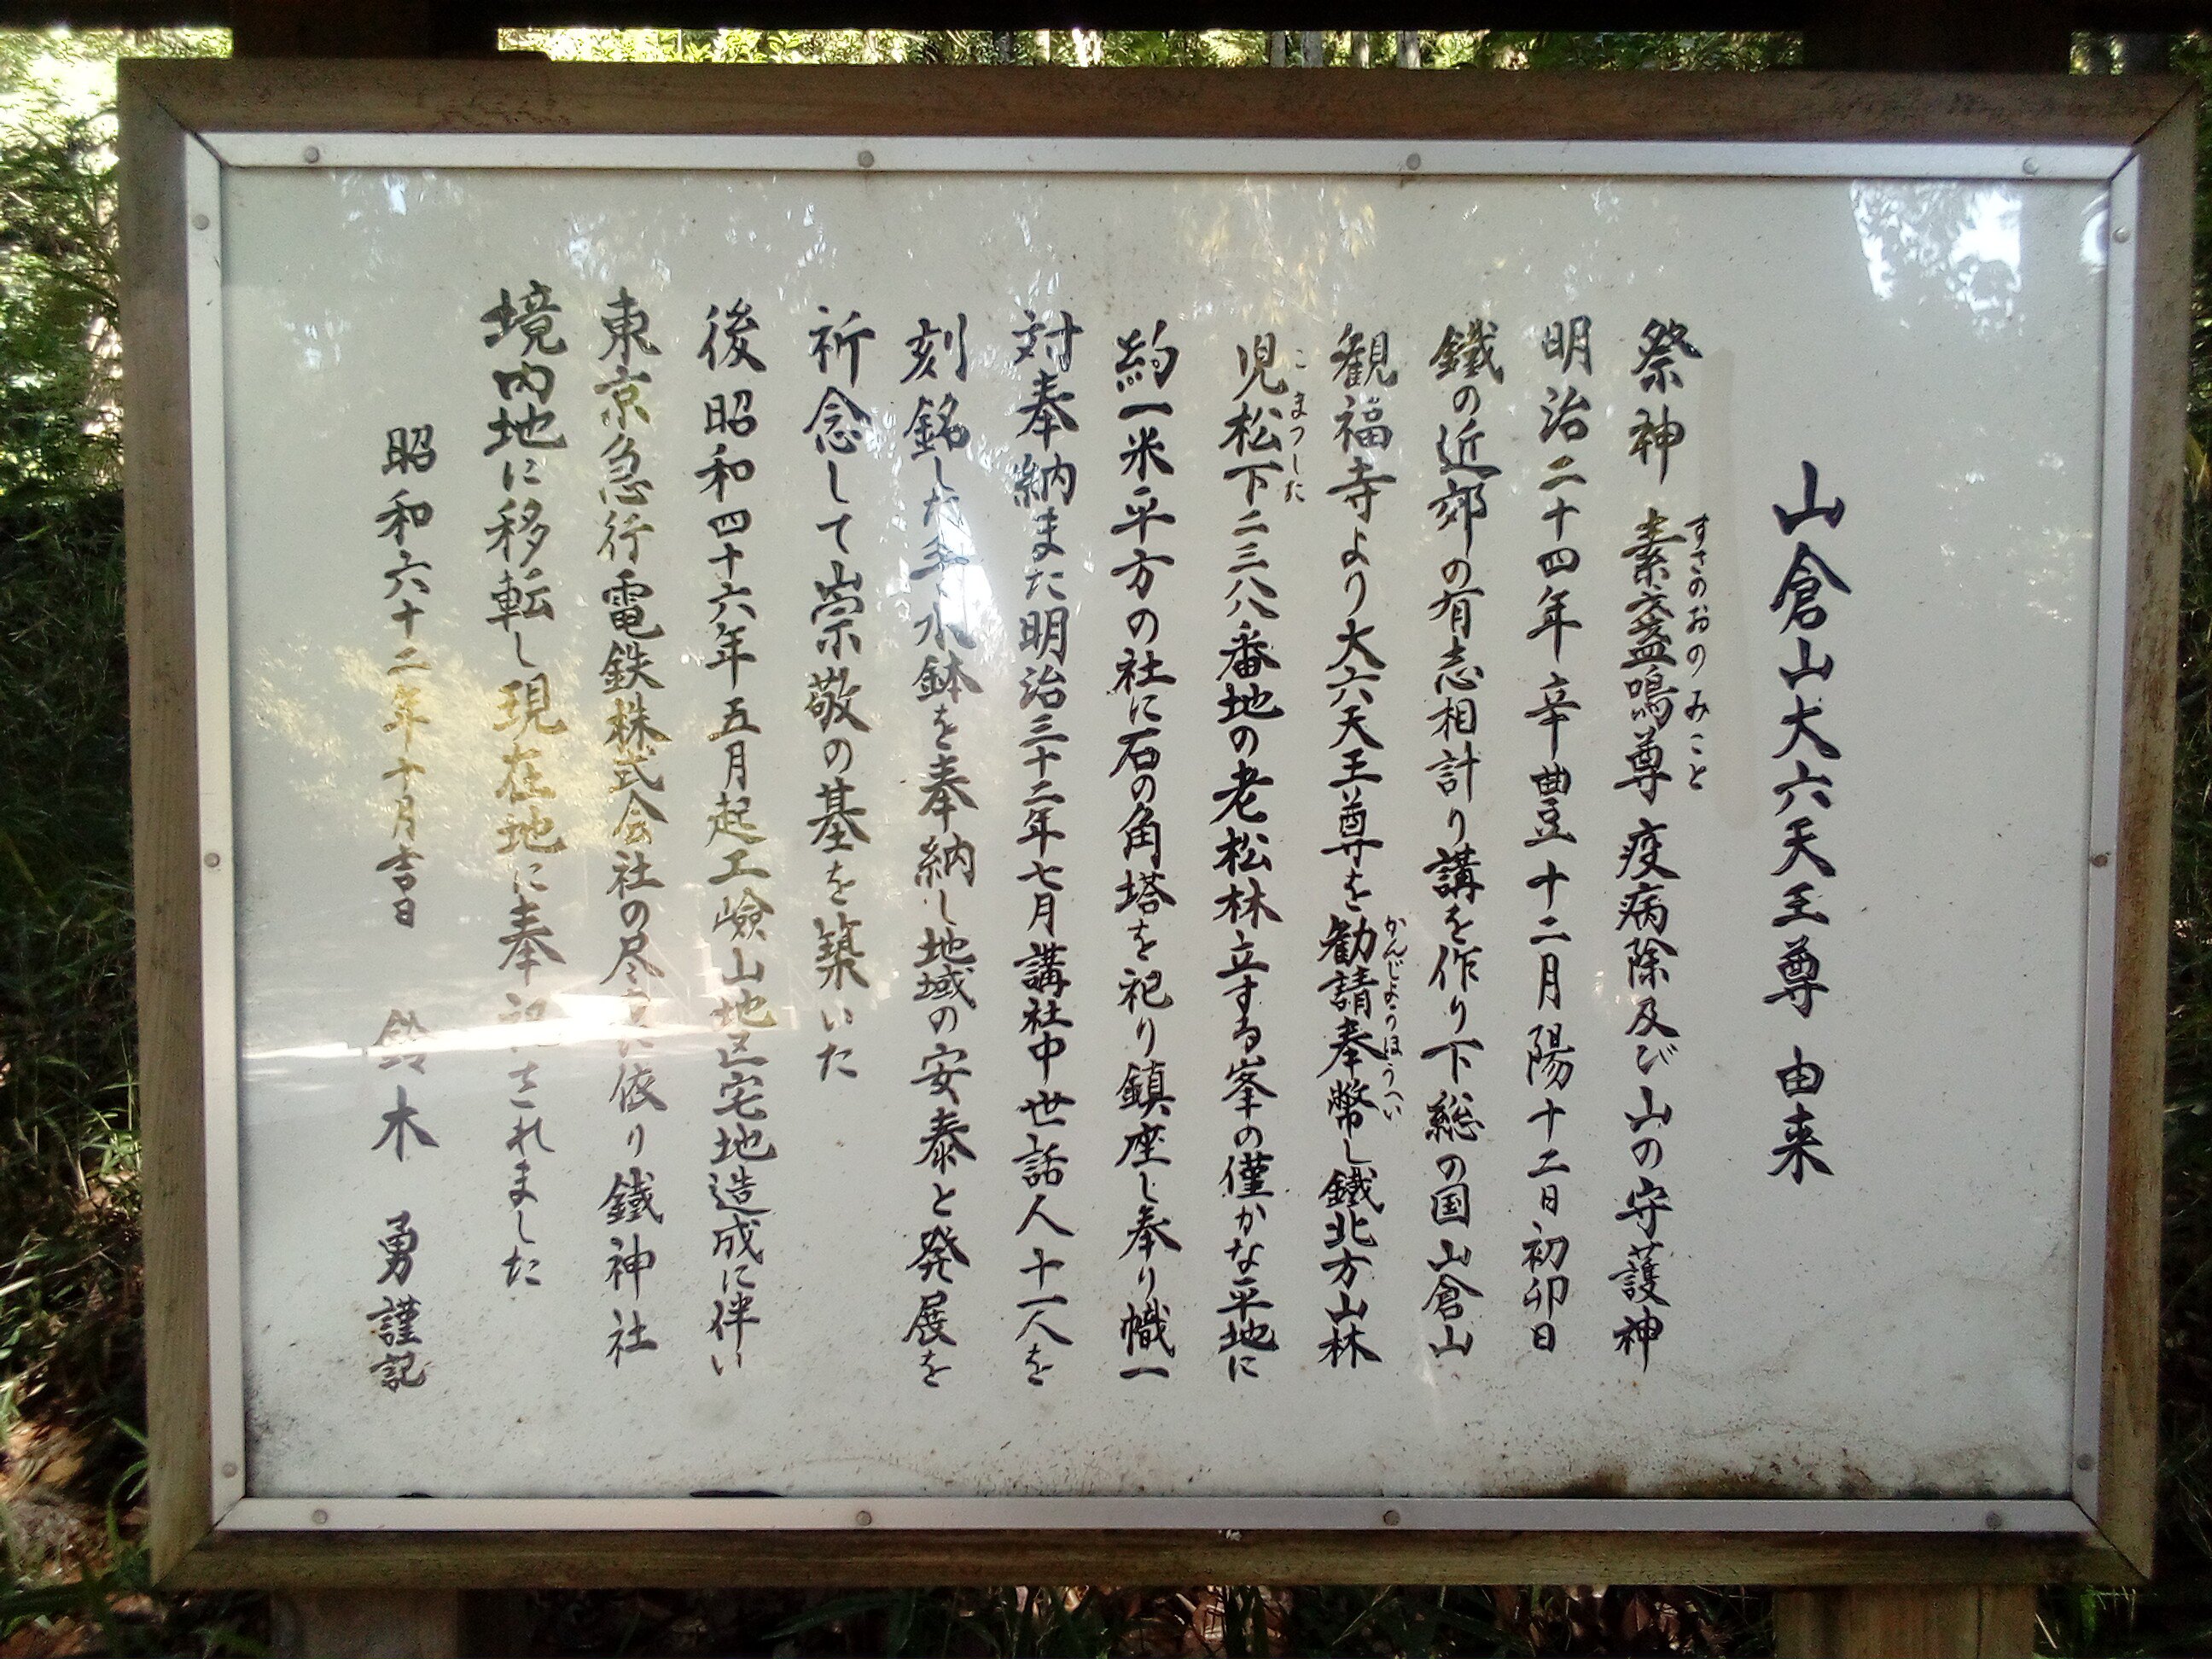 山倉山大六天王尊 由来
祭神 素盞鳴尊 疫病除及び山の守護神
すさのおのみこと
明治二十四年辛豊十二月陽十二日初卯日
鐵の近郊の有志相計り講を作り下総の国山倉山
観福寺より大六天王尊を勧請奉幣し鐵北方山林
かんじょうほうへい
児松下二三八番地の老松林立する峯の僅かな平地に
こまつした
約一米平方の社に石の角塔を祀り鎮座し奉り幟一
対奉納また明治三十二年七月講社中世話人十一人を
刻銘した手水鉢を奉納し地域の安泰と発展を
祈念して崇敬の基を築いた
後昭和四十六年五月起工嶮山地区宅地造成に伴い
東京急行電鉄株式会社の尽力に依り鐵神社
境内地に移転し現在地に奉祀されました
昭和六十二年十月吉日 鈴木 勇謹記